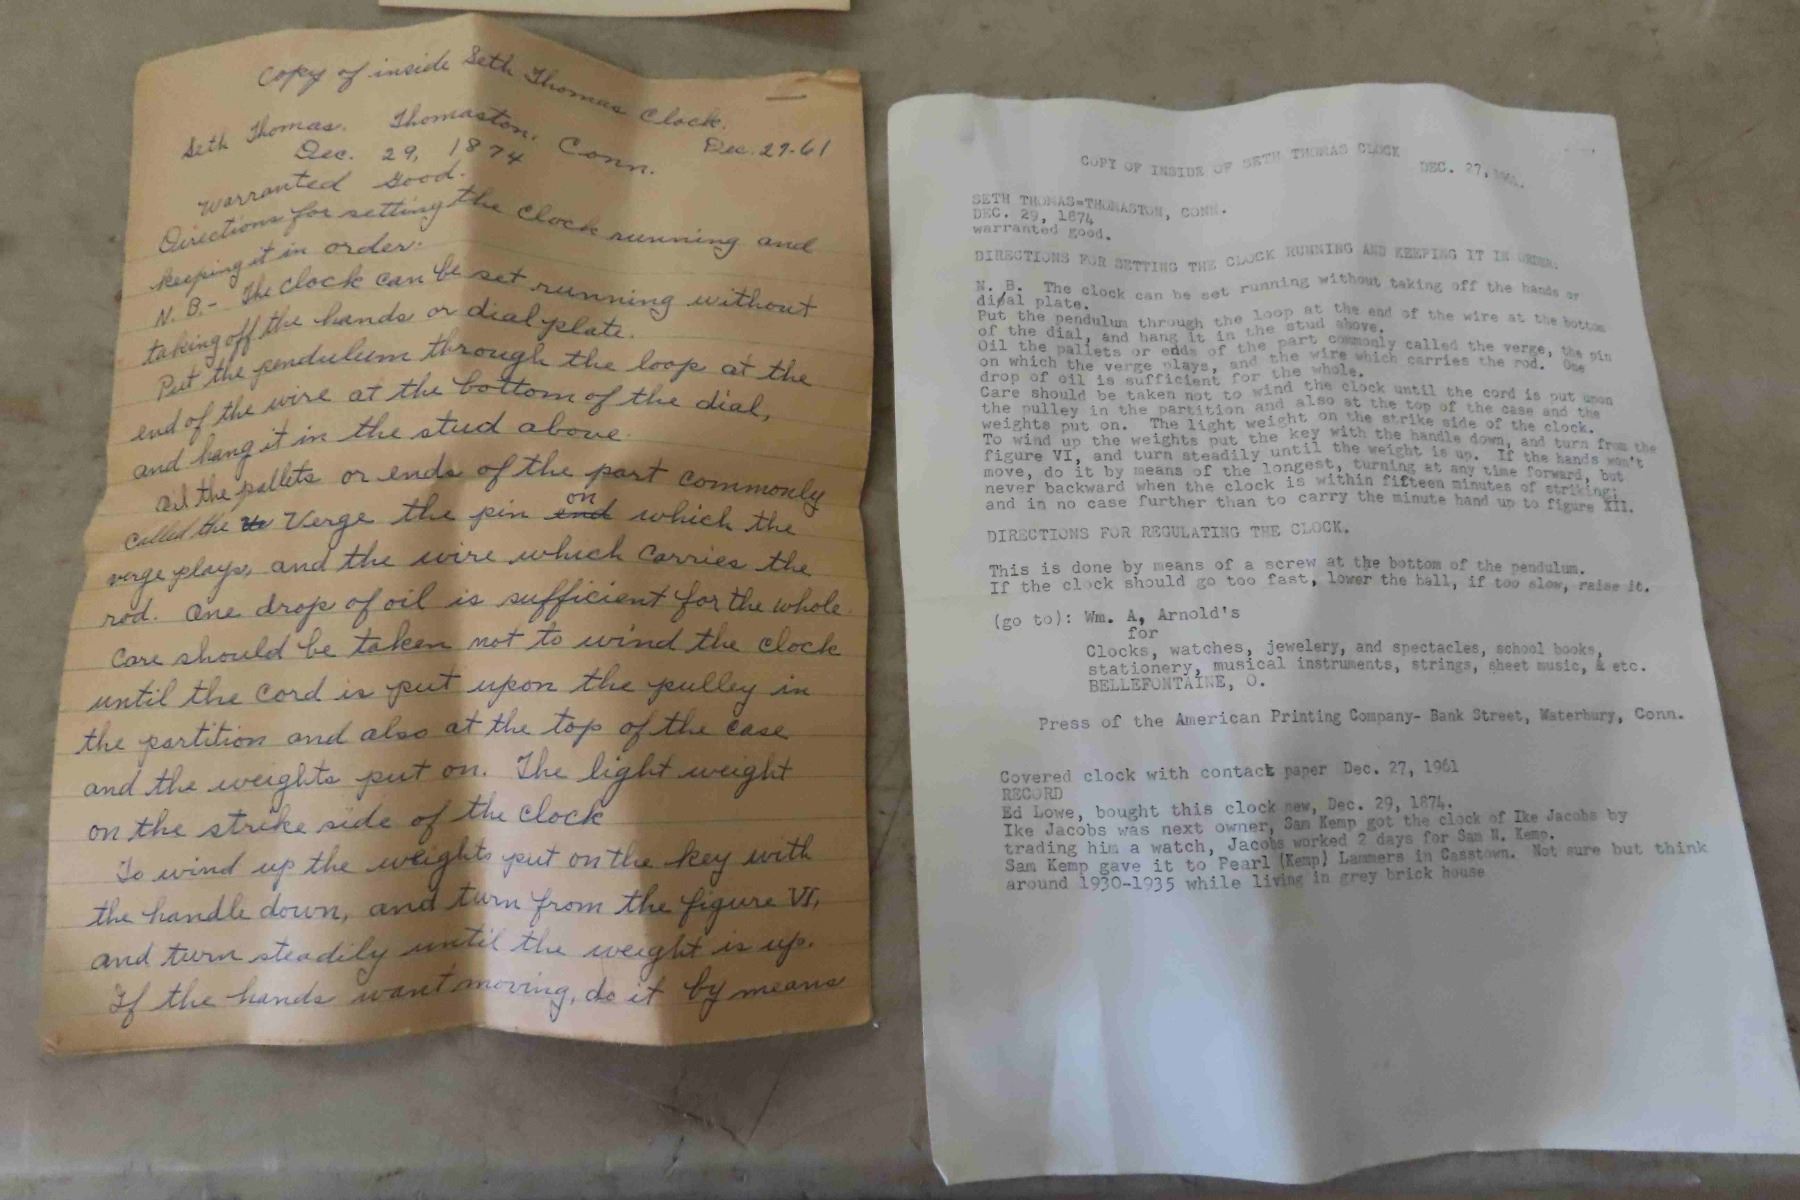 Copy of inside Seth Thomas Clock.
Dec. 27-61
Seth Thomas. Thomaston, Conn.
Dec. 29, 1874
Warranted Good.
Directions for setting the clock running and
keeping it in order.
N. B. - The clock can be set running without
taking off the hands or dial plate.
Put the pendulum through the loop at the
end of the wire at the bottom of the dial,
and hang it in the stud above.
Oil the pallets or ends of the part commonly
called the Verge the pin on which the
verge plays, and the wire which carries the
rod. One drop of oil is sufficient for the whole.
Care should be taken not to wind the clock
until the cord is put upon the pulley in
the partition and also at the top of the case
and the weights put on. The light weight
on the strike side of the clock
To wind up the weights put on the key with
the handle down, and turn from the figure VI,
and turn steadily until the weight is up.
If the hands want moving, do it by means
COPY OF INSIDE OF SETH THOMAS CLOCK DEC. 27,
SETH THOMAS=THOMASTON, CONN.
DEC. 29, 1874
warranted good.
DIRECTIONS FOR SETTING THE CLOCK RUNNING AND KEEPING IT IN ORDER.
N. B. The clock can be set running without taking off the hands or
dial plate.
Put the pendulum through the loop at the end of the wire at the bottom
of the dial, and hang it in the stud above.
Oil the pallets or ends of the part commonly called the verge, the pin
on which the verge plays, and the wire which carries the rod. One
drop of oil is sufficient for the whole.
Care should be taken not to wind the clock until the cord is put upon
the pulley in the partition and also at the top of the case and the
weights put on. The light weight on the strike side of the clock.
To wind up the weights put the key with the handle down, and turn from the
figure VI, and turn steadily until the weight is up. If the hands won't
move, do it by means of the longest, turning at any time forward, but
never backward when the clock is within fifteen minutes of striking;
and in no case further than to carry the minute hand up to figure XII.
DIRECTIONS FOR REGULATING THE CLOCK.
This is done by means of a screw at the bottom of the pendulum.
If the clock should go too fast, lower the ball, if too slow, raise it.
(go to): Wm. A, Arnold's
for
Clocks, watches, jewelery, and spectacles, school books,
stationery, musical instruments, strings, sheet music, & etc.
BELLEFONTAINE, O.
Press of the American Printing Company- Bank Street, Waterbury, Conn.
Covered clock with contact paper Dec. 27, 1961
RECORD
Ed Lowe, bought this clock new, Dec. 29, 1874.
Ike Jacobs was next owner, Sam Kemp got the clock of Ike Jacobs by
trading him a watch, Jacobs worked 2 days for Sam N. Kemp.
Sam Kemp gave it to Pearl (Kemp) Lammers in Casstown. Not sure but think
around 1930-1935 while living in grey brick house